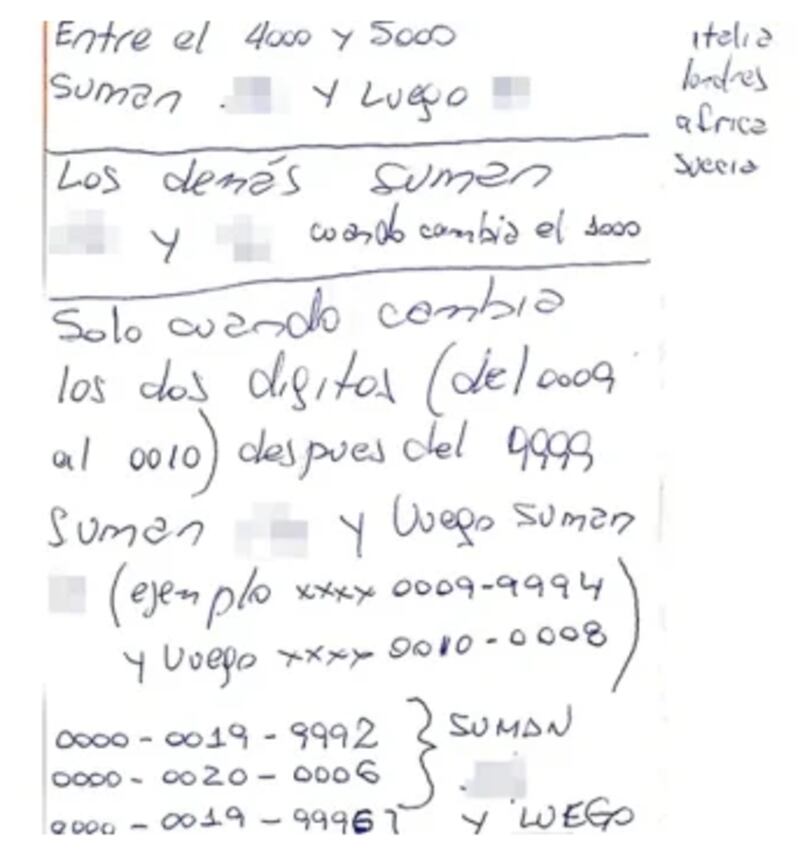 Entre el 4000 y 5000
Suman . y Luego
Los demás suman
y cuando cambia el 1000
Solo cuando cambia
los dos digitos (del 0009
al 0010) despues del 9999
Suman y luego suman
(ejemplo xxxx 0009-9994
y luego xxxx 0010-0008)
0000-0019-9992 } SUMAN
0000-0020-0006
0000-0019-99967 y LUEGO
italia
londres
africa
suecia